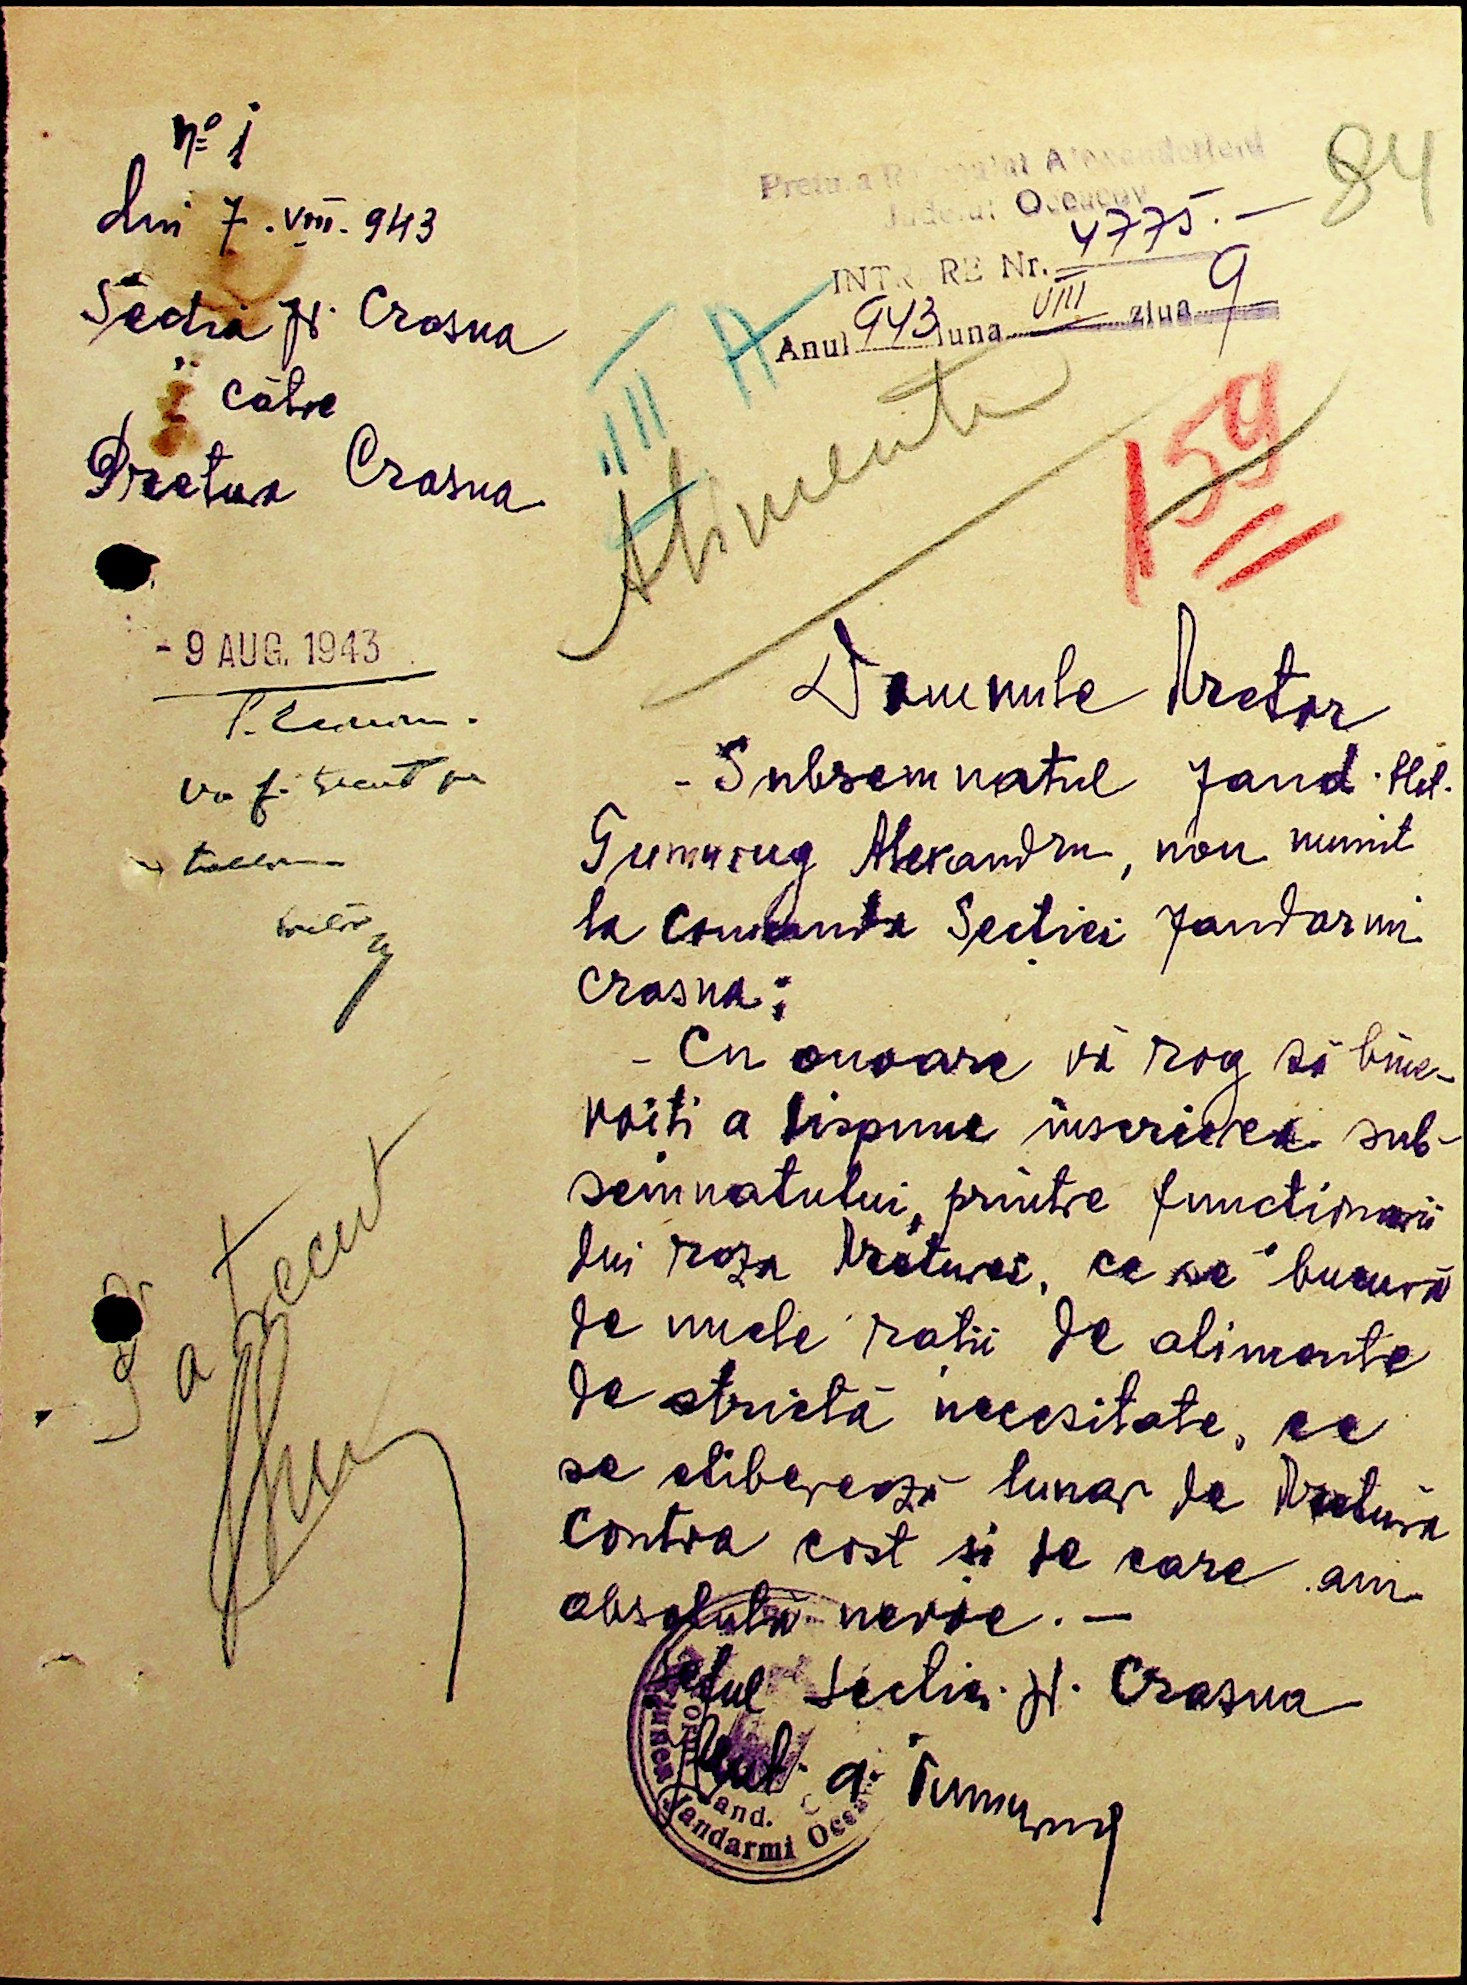 84
No 1
din 7.VIII.943
Secția Jd. Crasna
către
Pretura Crasna
Pretura Raionului
Județul Oceacov
INTRARE Nr. 4775.-
Anul 943 luna VIII ziua 9
III A
Alimente
159
- 9 AUG. 1943
va fi trecut pe
S a trecut
Domnule Pretor
- Subsemnatul Jand.
Alexandru, nou numit
la comanda Secției Jandarmi
Crasna;
- Cu onoare vă rog să bine-
voiți a dispune înscrierea sub-
semnatului, printre funcționarii
din raza Preturei, ce se bucură
de unele rații de alimente
de strictă necesitate, ce
se eliberează lunar de Pretură
contra cost și de care am
absolută nevoie. -
Șeful Secției Jd. Crasna
Jandarmi